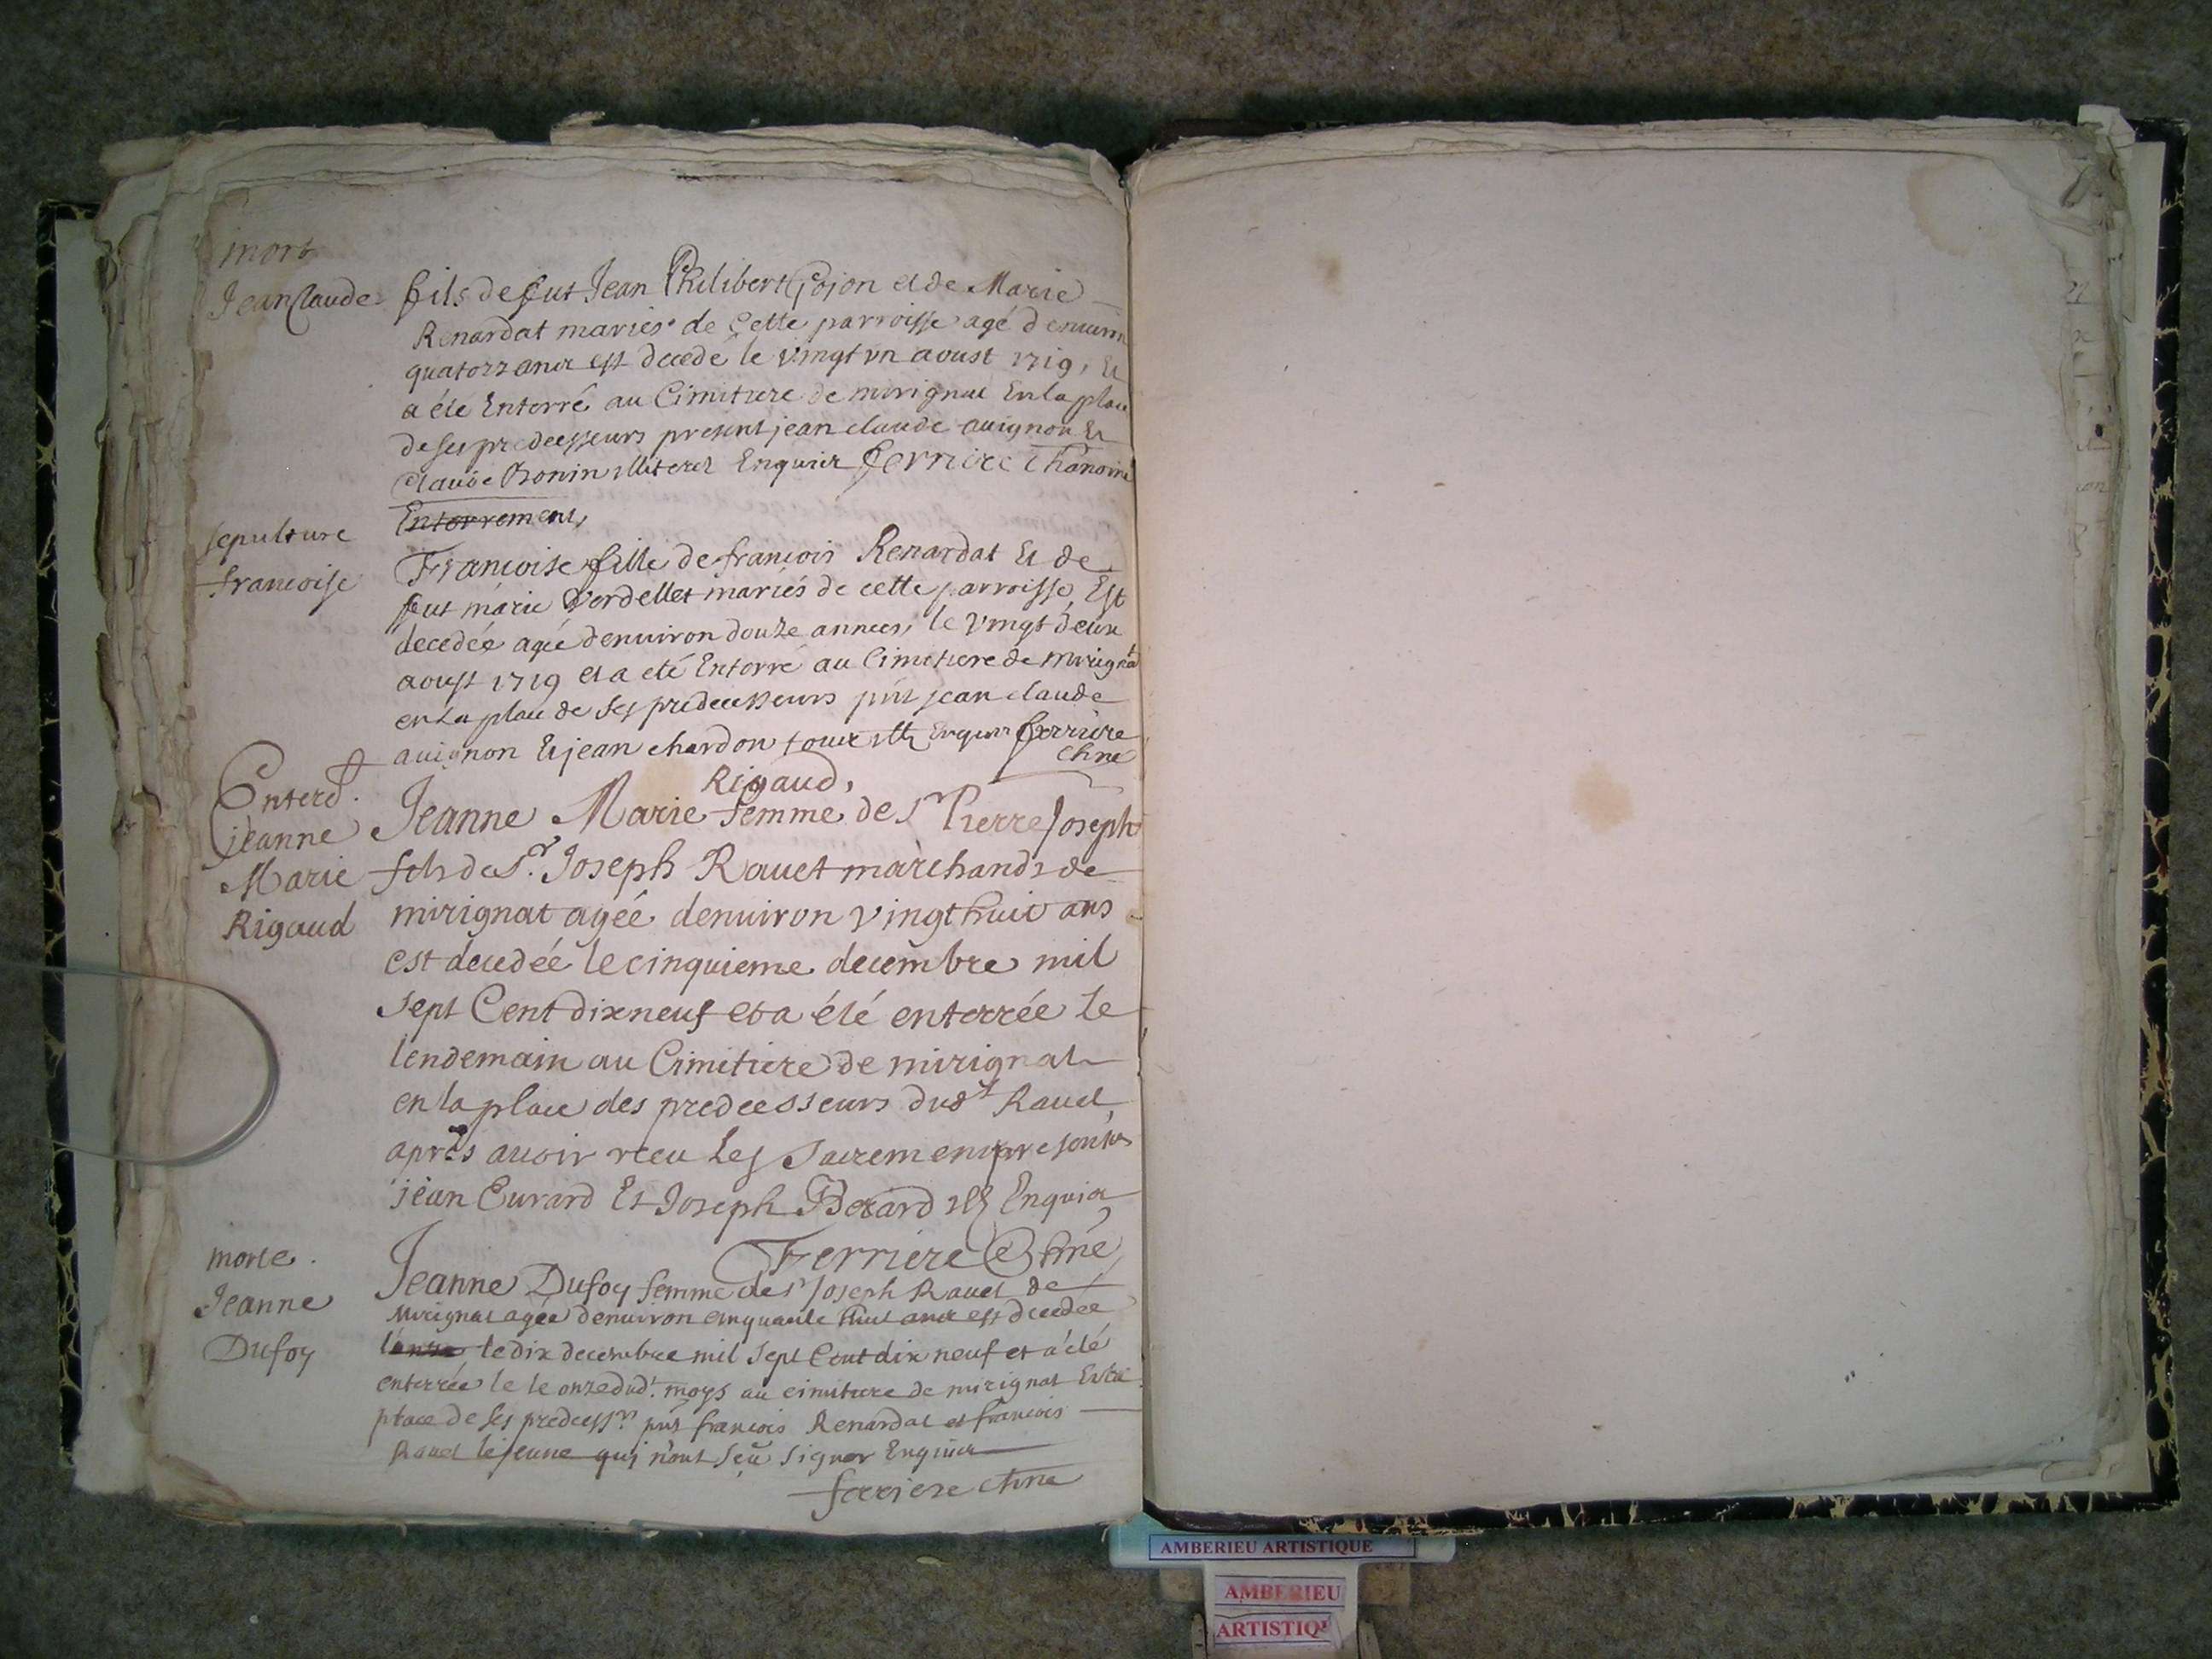 mort
Jean Claude fils de fut Jean Philibert Gojon et de Marie
Renardat mariés de Cette parroisse agé d environ
quatorz ancz est decedé le vingt vn aoust 1719, Et
a éte Enterré au Cimitiere de mirignat En la place
de ses predecesseurs present jean claude auignon Et
Claude Bonin illiterez Enquier ferriere Chanoine
Enterrement,
sepulture
francoise Francoise fille de francois Renardat Et de
fut marie Verdellet mariés de cette parroisse, Est
decedée agée denuiron douze annees, le vingt deux
aoust 1719 et a eté Enterré au Cimitiere de mirignat
en La place de Ses predecesseurs pnt jean claude
auignon Et jean chardon touz ill Enquier ferriere
Chne
Enterd.
Rigaud,
jeanne Jeanne Marie femme de Sr Pierre Joseph
Marie fils de Sr. Joseph Rauet marchands de
Rigaud mirignat agée denuiron vingt huit ans
est decedée le cinquieme decembre mil
Sept Cent dix neuf et a été enterrée le
lendemain au Cimitiere de mirignat
en la place des predecesseurs dudt Rauet,
aprés auoir receu Les Sacremens presents
jean Eurard Et Joseph Berard ill Enquier
Ferriere Chne
morte.
Jeanne Jeanne Dufoy femme de sr Joseph Rauet de
Mirignat agée denuiron cinquante huit ancz est decedée
Dufoy le dix decembre mil Sept Cent dix neuf et a été
enterrée le le onze dudt. moys au cimitiere de mirignat En la
place de Ses predecessrs pnts francois Renardat et francois
Rauet le jeune qui n'ont Sçu Signer Enquier
ferriere chne
AMBERIEU ARTISTIQUE
AMBERIEU
ARTISTIQ